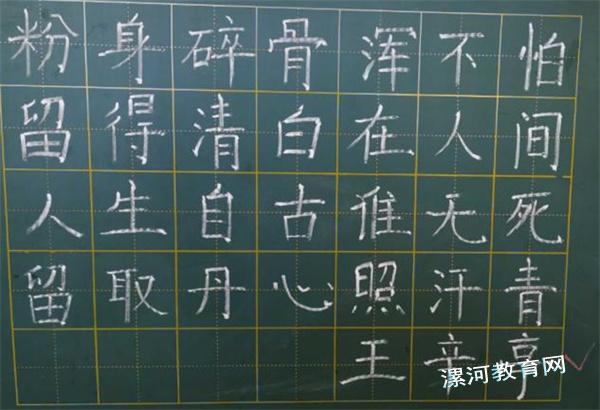 粉身碎骨浑不怕
留得清白在人间
人生自古谁无死
留取丹心照汗青
王辛亨
漯河教育网